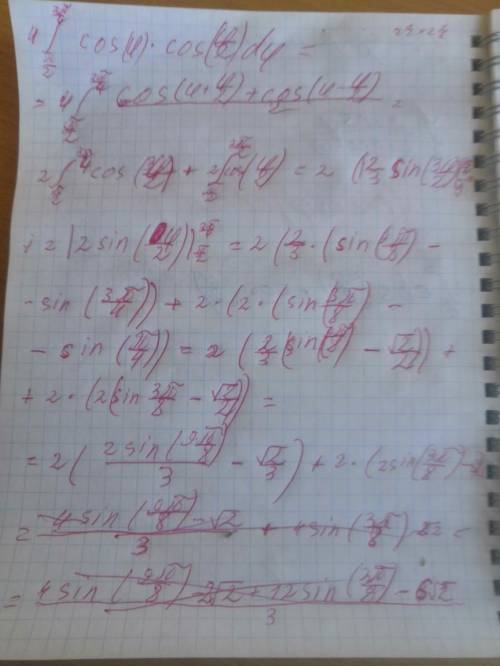 4 ∫_{π/2}^{3π/4} cos(φ)·cos(φ/2)dφ =
= 4 ∫_{π/2}^{3π/4} cos(φ+φ/2)+cos(φ-φ/2) / 2 =
2 ∫_{π/2}^{3π/4} cos(3φ/2) + 2∫cos(φ/2) = 2 (|2/3 sin(3φ/2)|
+ 2 |2 sin(φ/2)|_{π/2}^{3π/4} = 2 (2/3 · (sin(9π/8) -
- sin (3π/4)) + 2·(2·(sin(3π/8) -
- sin (π/4)) = 2 (2/3 (sin(9π/8) - √2/2)) +
+ 2·(2(sin 3π/8 - √2/2)) =
= 2( 2sin(9π/8) / 3 - √2/3) + 2·(2sin(3π/8) -
= 4sin(9π/8) - 2√2 / 3 + 4sin(3π/8) - 2√2 =
= 4sin(9π/8) - 2√2 + 12sin(3π/8) - 6√2 / 3